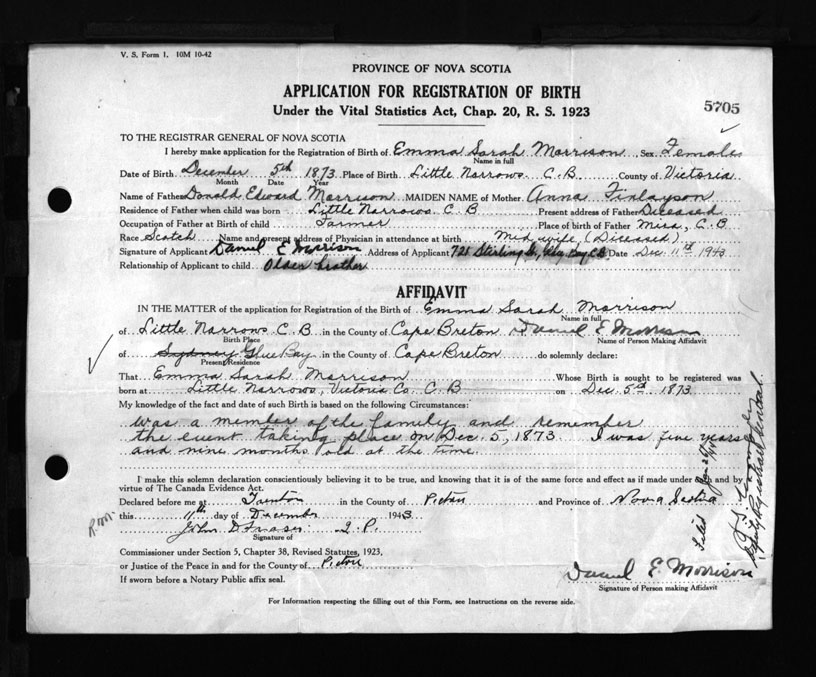 V. S. Form 1. 10M 10-42
PROVINCE OF NOVA SCOTIA
APPLICATION FOR REGISTRATION OF BIRTH
Under the Vital Statistics Act, Chap. 20, R. S. 1923
5705
TO THE REGISTRAR GENERAL OF NOVA SCOTIA
I hereby make application for the Registration of Birth of Emma Sarah Morrison Sex Female
Name in full
Date of Birth December 5th 1873 Place of Birth Little Narrows C. B. County of Victoria
Month Date Year
Name of Father Donald Edward Morrison MAIDEN NAME of Mother Anna Finlayson
Residence of Father when child was born Little Narrows C. B Present address of Father Deceased
Occupation of Father at Birth of child Farmer Place of birth of Father Mira, C. B
Race Scotch Name and present address of Physician in attendance at birth Mid wife (Deceased)
Signature of Applicant Daniel E Morrison Address of Applicant 721 Stirling Glace Bay C B Date Dec 11th 1943
Relationship of Applicant to child Older brother
AFFIDAVIT
IN THE MATTER of the application for Registration of the Birth of Emma Sarah Morrison
Name in full
of Little Narrows C. B in the County of Cape Breton Daniel E Morrison
Birth Place Name of Person Making Affidavit
of Sydney Glace Bay in the County of Cape Breton do solemnly declare:
Present Residence
That Emma Sarah Morrison Whose Birth is sought to be registered was
born at Little Narrows, Victoria Co. C. B on Dec. 5th 1873
My knowledge of the fact and date of such Birth is based on the following Circumstances:
was a member of the family and remember
the event taking place on Dec. 5, 1873. I was five years
and nine months old at the time.
I make this solemn declaration conscientiously believing it to be true, and knowing that it is of the same force and effect as if made under and by
virtue of The Canada Evidence Act.
Declared before me at in the County of Pictou and Province of Nova Scotia
this 11th day of December 1943
John D Fraser J. P.
Signature of
Commissioner under Section 5, Chapter 38, Revised Statutes, 1923,
or Justice of the Peace in and for the County of Pictou
If sworn before a Notary Public affix seal.
Daniel E Morrison
Signature of Person making Affidavit
For Information respecting the filling out of this Form, see Instructions on the reverse side.
Filed
Deputy Registrar General